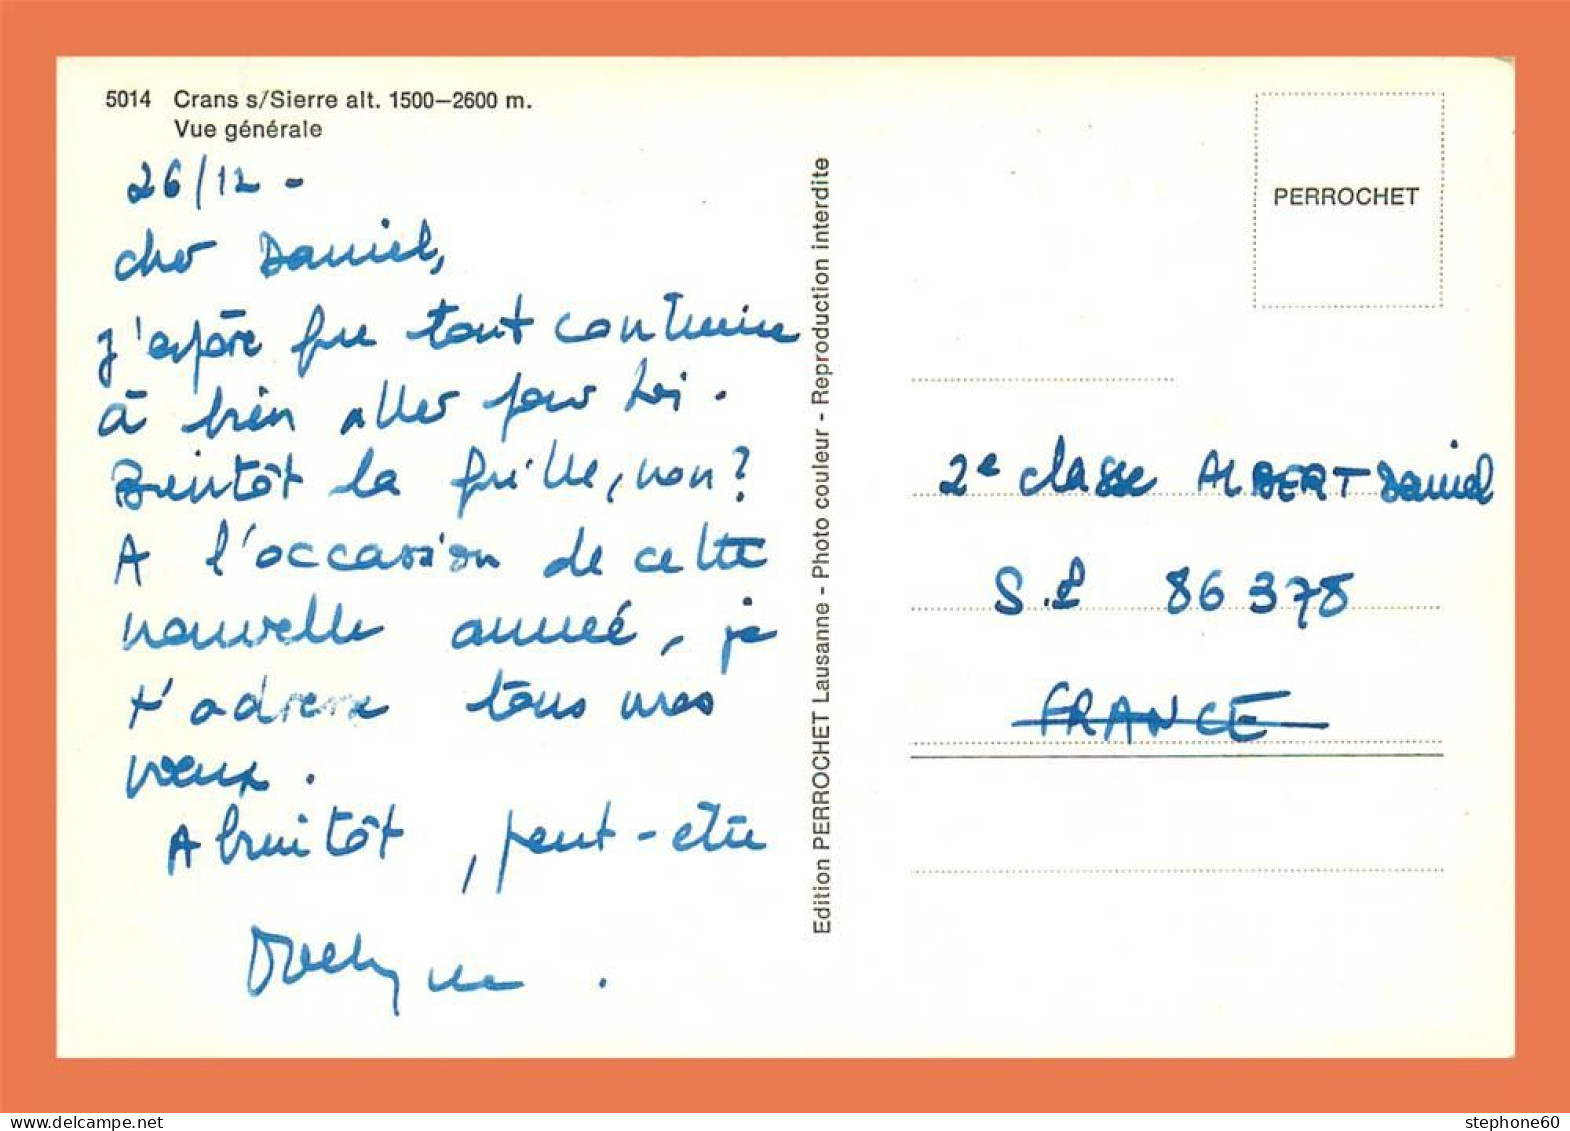 5014 Crans s/Sierre alt. 1500—2600 m.
Vue générale
26/12 -
cher Daniel,
J'espère que tout continue
à bien aller pour toi.
Bientôt la quille, non?
A l'occasion de cette
nouvelle année, je
t'adresse tous mes
voeux.
A bientôt, peut-être
Edition PERROCHET Lausanne - Photo couleur - Reproduction interdite
PERROCHET
2e classe ALBERT Daniel
S.P 86 378
FRANCE
stephone60